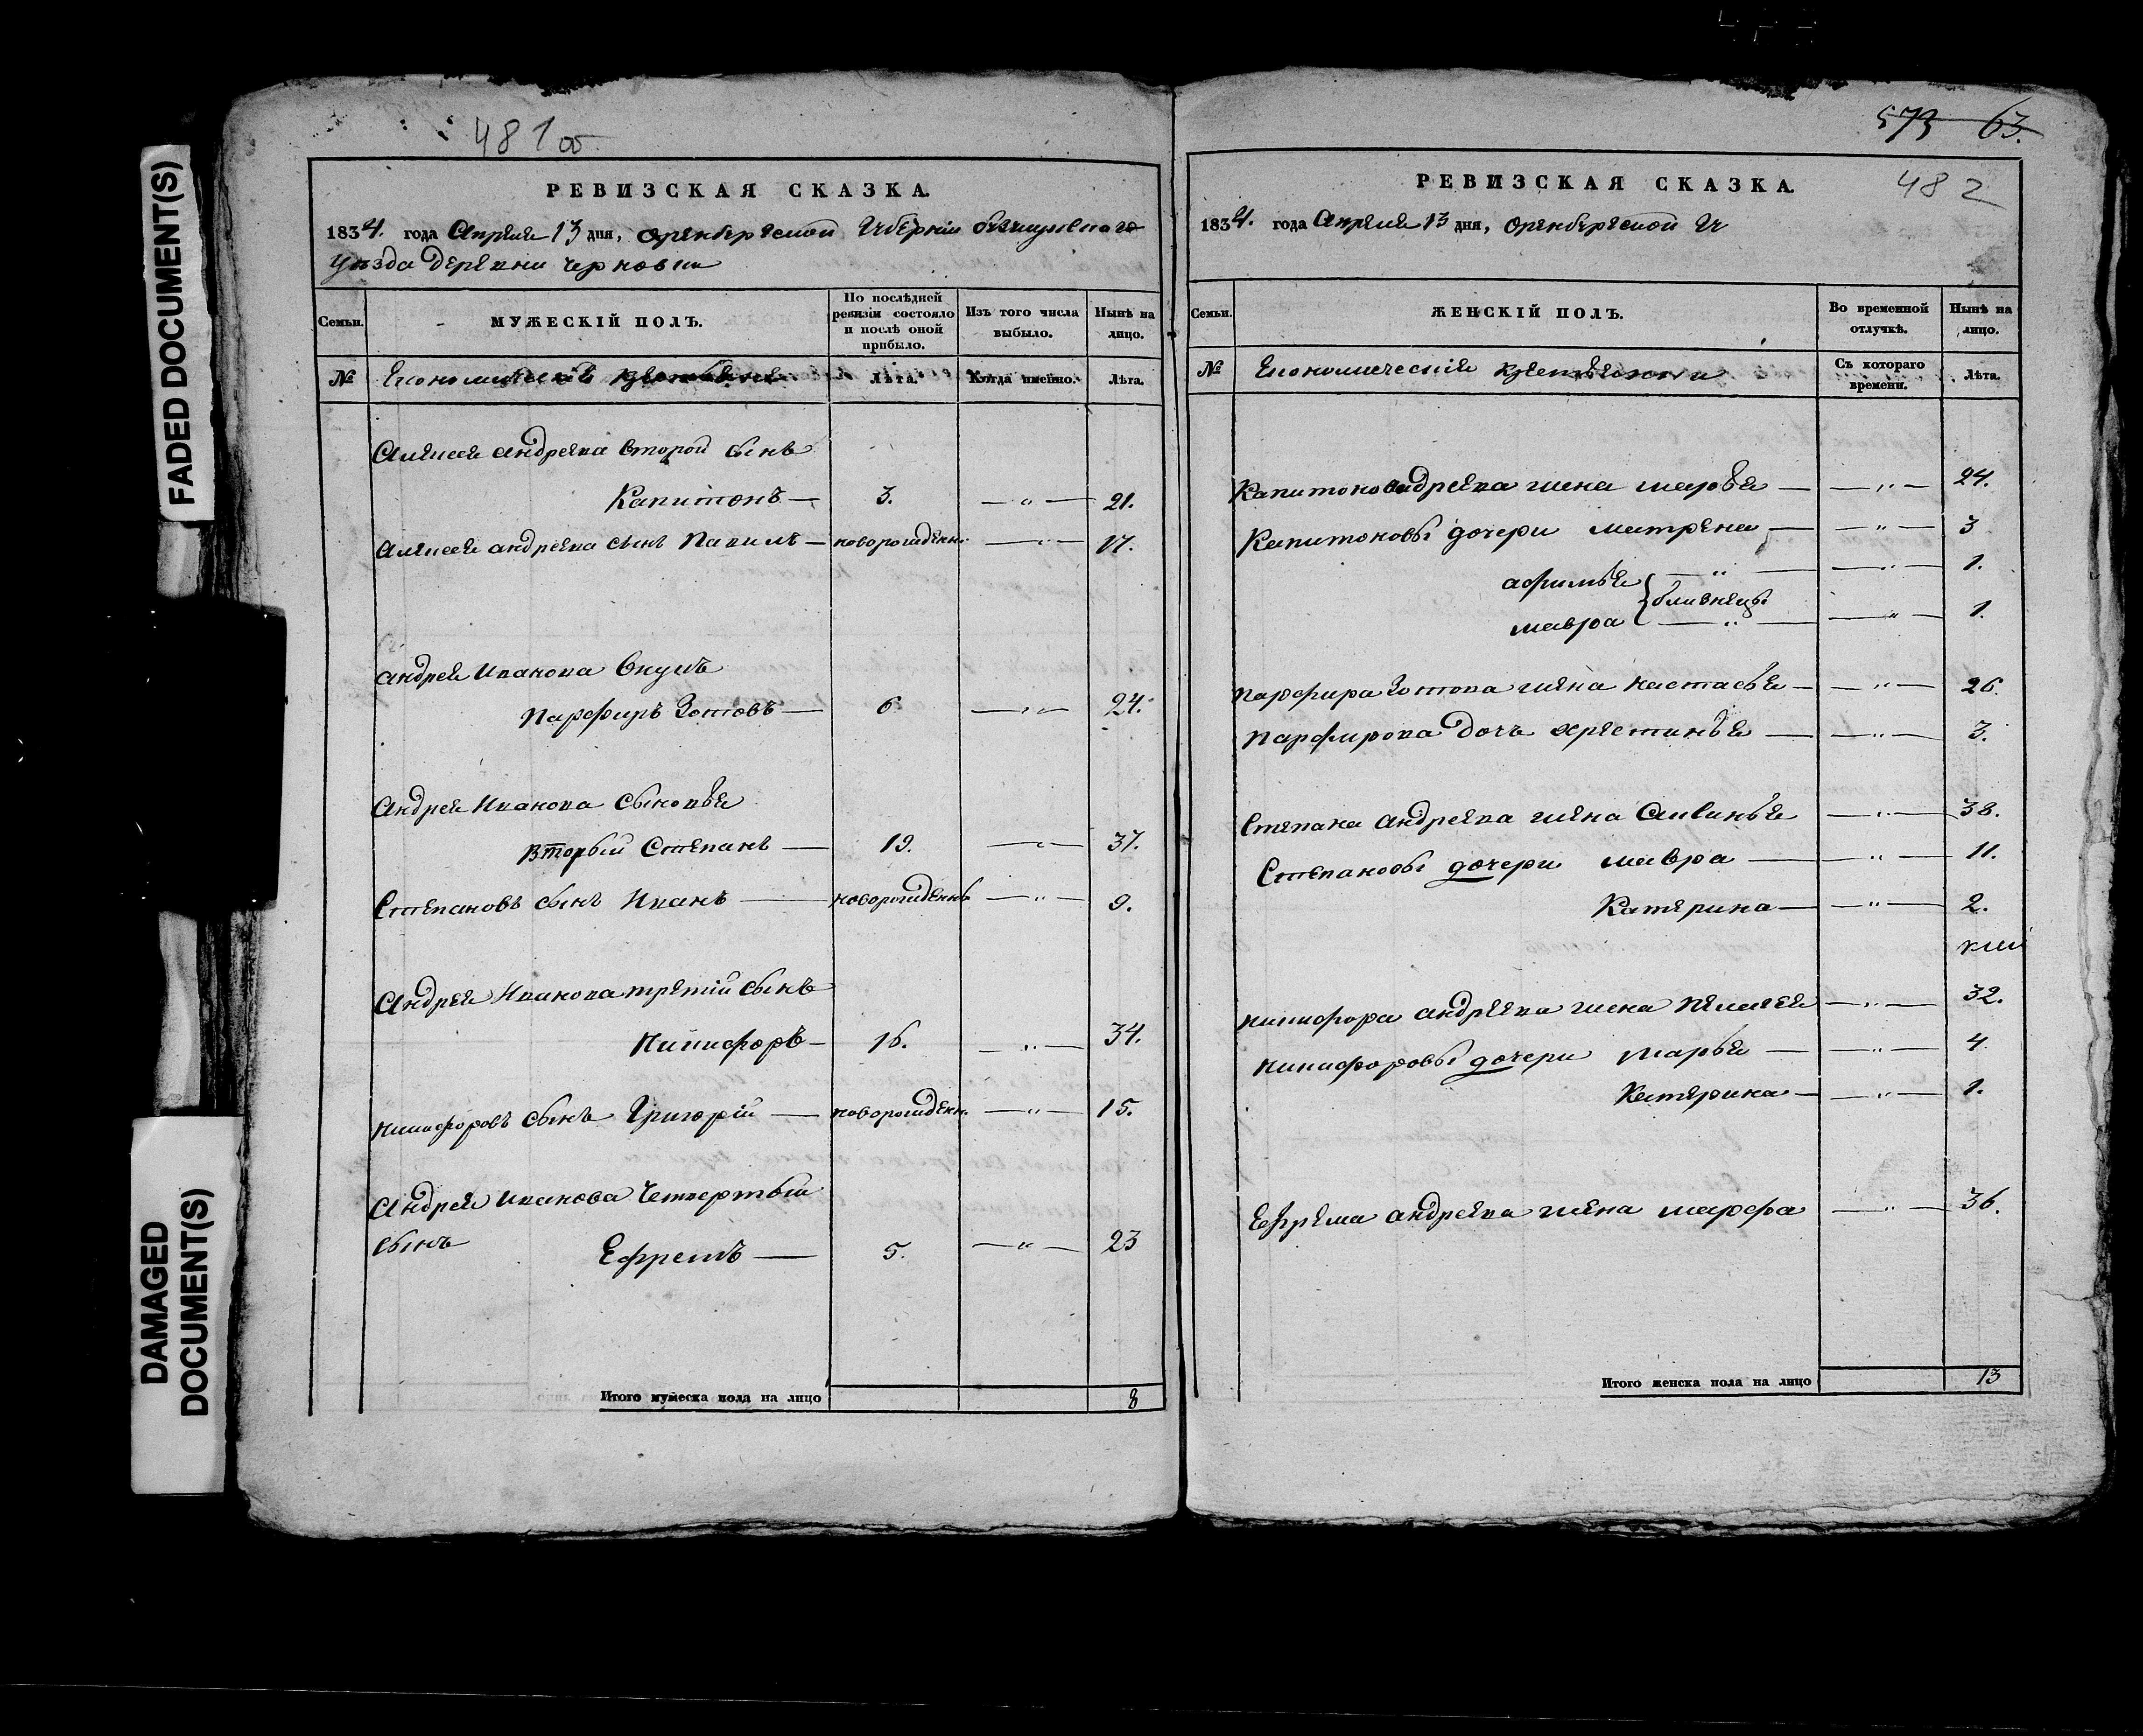 FADED DOCUMENT(S)
DAMAGED
DOCUMENT(S)
481 об
РЕВИЗСКАЯ СКАЗКА.
1834. года Апреля 13 дня, Оренбургской Губернии
уезда деревни Черновки
Семьи.
МУЖЕСКІЙ ПОЛЪ.
По послѣдней ревизіи состояло и послѣ оной прибыло.
Изъ того числа выбыло.
Нынѣ на лицо.
№
Економическіе крестьяне
Лѣта.
Когда имянно.
Лѣта.
Алексея Андреева второй сынъ
Капитонъ — 3. — „ — 21.
Алексея Андреева сынъ Павилъ — новорожденн. — „ — 17.
Андрея Иванова внукъ
Парфиръ Зотовъ — 6 — „ — 24.
Андрея Иванова сыновья
вторый Степанъ — 19. — „ — 37.
Степановъ сынъ Иванъ — новорожденнъ — „ — 9.
Андрея Иванова третій сынъ
Никифоръ — 16. — „ — 34.
Никифоровъ сынъ Григорій — новорожденн. — „ — 15.
Андрея Иванова четвертый
сынъ Ефремъ — 5. — „ — 23
Итого мужеска пола на лицо 8
573 63.
РЕВИЗСКАЯ СКАЗКА. 482
1834. года Апреля 13 дня, Оренбургской Гу
Семьи.
ЖЕНСКІЙ ПОЛЪ.
Во временной отлучкѣ.
Нынѣ на лицо.
№
Економическія крестьянки
Съ котораго времени.
Лѣта.
Капитона Андреева жена Марья — „ — 24.
Капитоновы дочери Матрена — „ — 3
Афимья — „ — „ — 1.
близнецы
Мавра — „ — „ — 1.
Парфира Зотова жена Настасья — „ — 26.
Парфирова дочь Христинья — „ — 3.
Степана Андреева жена Аксинья — „ — 38.
Степановы дочери Мавра — „ — 11.
Катерина — „ — 2.
Никифора Андреева жена Пелагея — „ — 32.
Никифоровы дочери Марья — „ — 4
Катерина — „ — 1.
Ефрема Андреева жена Марфа — „ — 36.
Итого женска пола на лицо 13